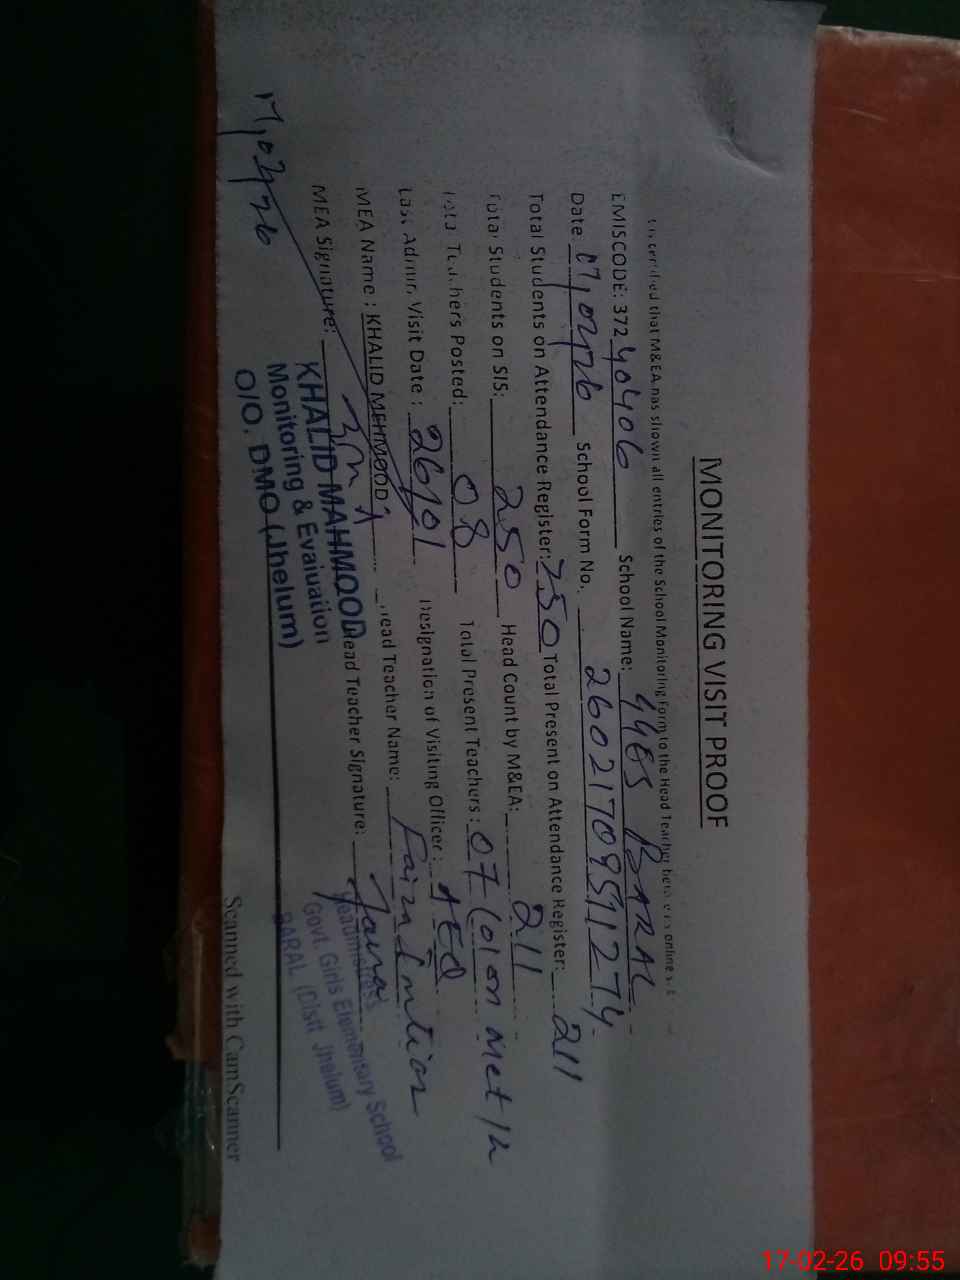 MONITORING VISIT PROOF
certified that M&EA has shown all entries of the School Monitoring Form to the Head Teacher
EMISCODE: 37240406 School Name: GGES BARAL
Date 17,02,26 School Form No. 2602170951127４
Total Students on Attendance Register: 250 Total Present on Attendance Register: 211
Total Students on SIS: 250 Head Count by M&EA: 211
Total Teachers Posted: 08 Total Present Teachers: 07 (01 on
Last Admin, Visit Date: 26/01 Designation of Visiting Officer: AEO
MEA Name: KHALID MEHMOOD Head Teacher Name: Faiza Imtiaz
MEA Signature: Head Teacher Signature:
17,02,26
KHALID MAHMOOD
Monitoring & Evaluation
O/O. DMO (Jhelum)
Headmistress
Govt. Girls Elementary School
BARAL (Distt Jhelum)
Scanned with CamScanner
17-02-26 09:55